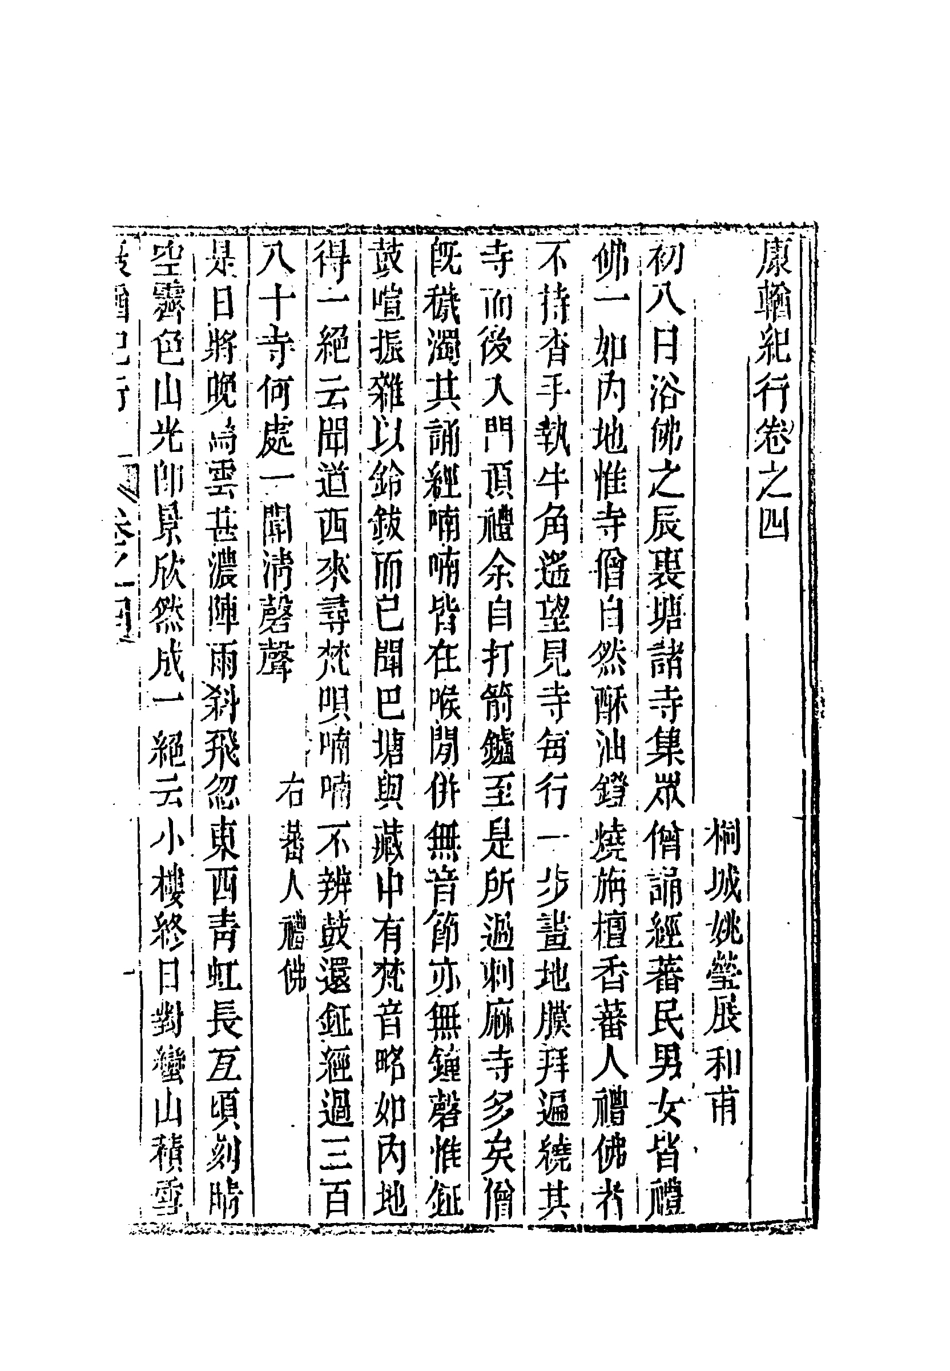 康輶紀行卷之四
桐城姚瑩展和甫
初八日浴佛之辰裏塘諸寺集眾僧誦經蕃民男女皆禮
佛一如内地惟寺僧自然酥油鐙燒旃檀香蕃人禮佛者
不持杳手執牛角遥望見寺每行一步畫地膜拜遍繞其
寺而後入門頂禮余自打箭鑪至是所過刺麻寺多矣僧
旣穢濁其誦經喃喃皆在喉閒併無音節亦無鐘磬惟鉦
鼓喧振雜以鈴鈸而已聞巴塘與藏中有梵音略如内地
得一絕云聞道西來尋梵唄喃喃不辨鼓還鉦經過三百
八十寺何處一聞淸磬聲 右蕃人禮佛
是日將晚㟢雲甚濃陣雨斜飛忽東西靑虹長亙頃刻晴
空霽色山光師景欣然成一絕云小樓終日對蠻山積雪
康輶紀行 卷之四 一